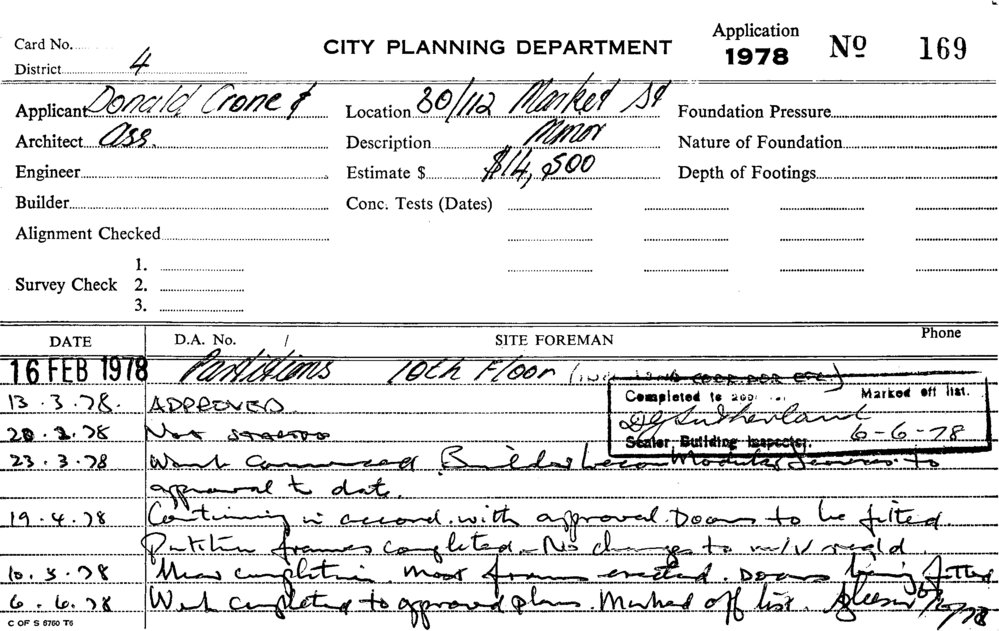 Card No.
CITY PLANNING DEPARTMENT
Application
1978
No 169
District 4
Applicant Donald Crone &
Location 80/112 Market St
Foundation Pressure
Architect Ass.
Description Minor
Nature of Foundation
Engineer
Estimate $ $14,500
Depth of Footings
Builder
Conc. Tests (Dates)
Alignment Checked
Survey Check
1.
2.
3.
DATE
D.A. No. /
SITE FOREMAN
Phone
16 FEB 1978 Partitions 10th Floor
Completed to Marked off list.
DG Sutherland
Senior Building Inspector. 6-6-78
13.3.78. APPROVED
20.3.78 Not started
23.3.78 Work Commenced. Builder Modular Services to
approval to date.
19.4.78 Continuing in accord. with approval. Doors to be fitted.
Partition frames completed. No changes to req'd
10.5.78 Near completion. most frames erected. Doors being fitted
6.6.78 Work completed to approved plans. Marked off list.
C OF S 6760 T6